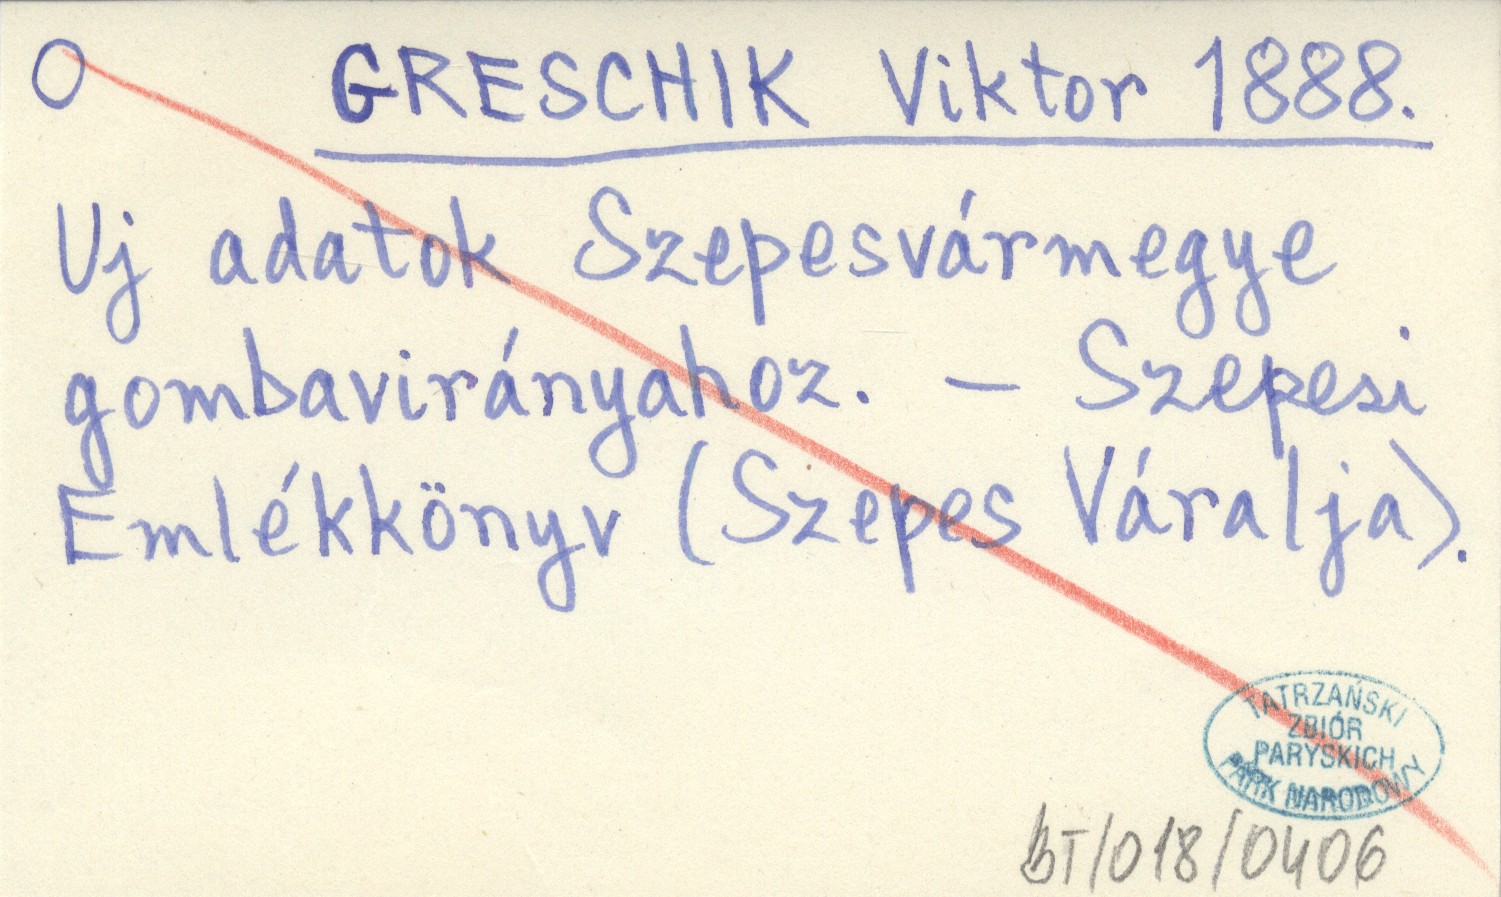 O GRESCHIK Viktor 1888.
Uj adatok Szepesvármegye
gombavirányahoz. – Szepesi
Emlékkönyv (Szepes Váralja).
TATRZAŃSKI
ZBIÓR
PARYSKICH
PARK NARODOWY
BT/018/0406